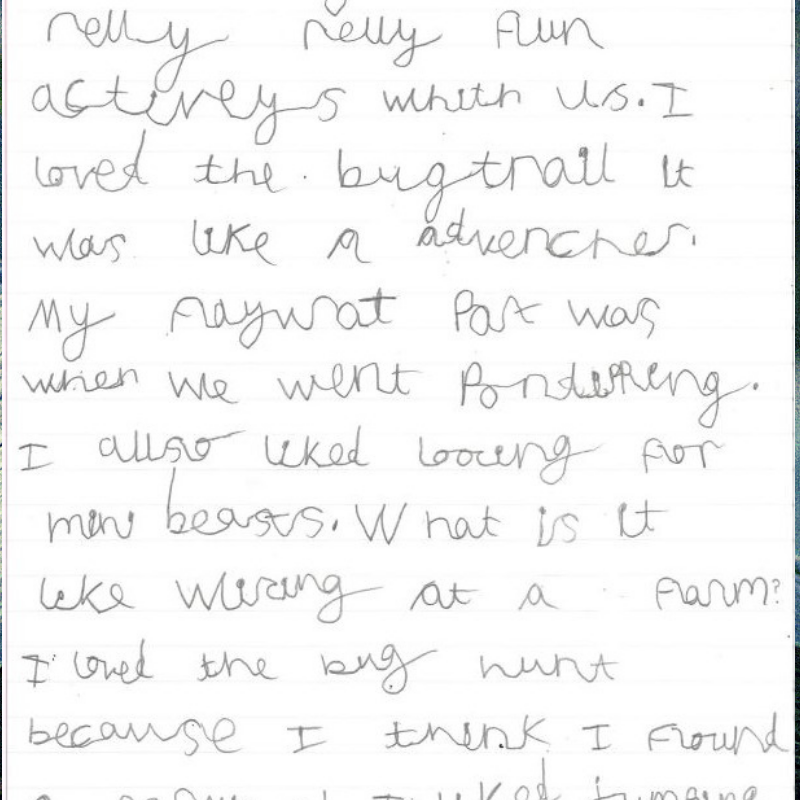 relly relly fun
activeys whith us. I
loved the bugtrail it
was like a advencher.
My faywrat Part was
when we went Pondipping.
I allso liked looking for
mini beasts. What is it
like wlrking at a farm?
I loved the bug hunt
because I think I found
I liked jumping